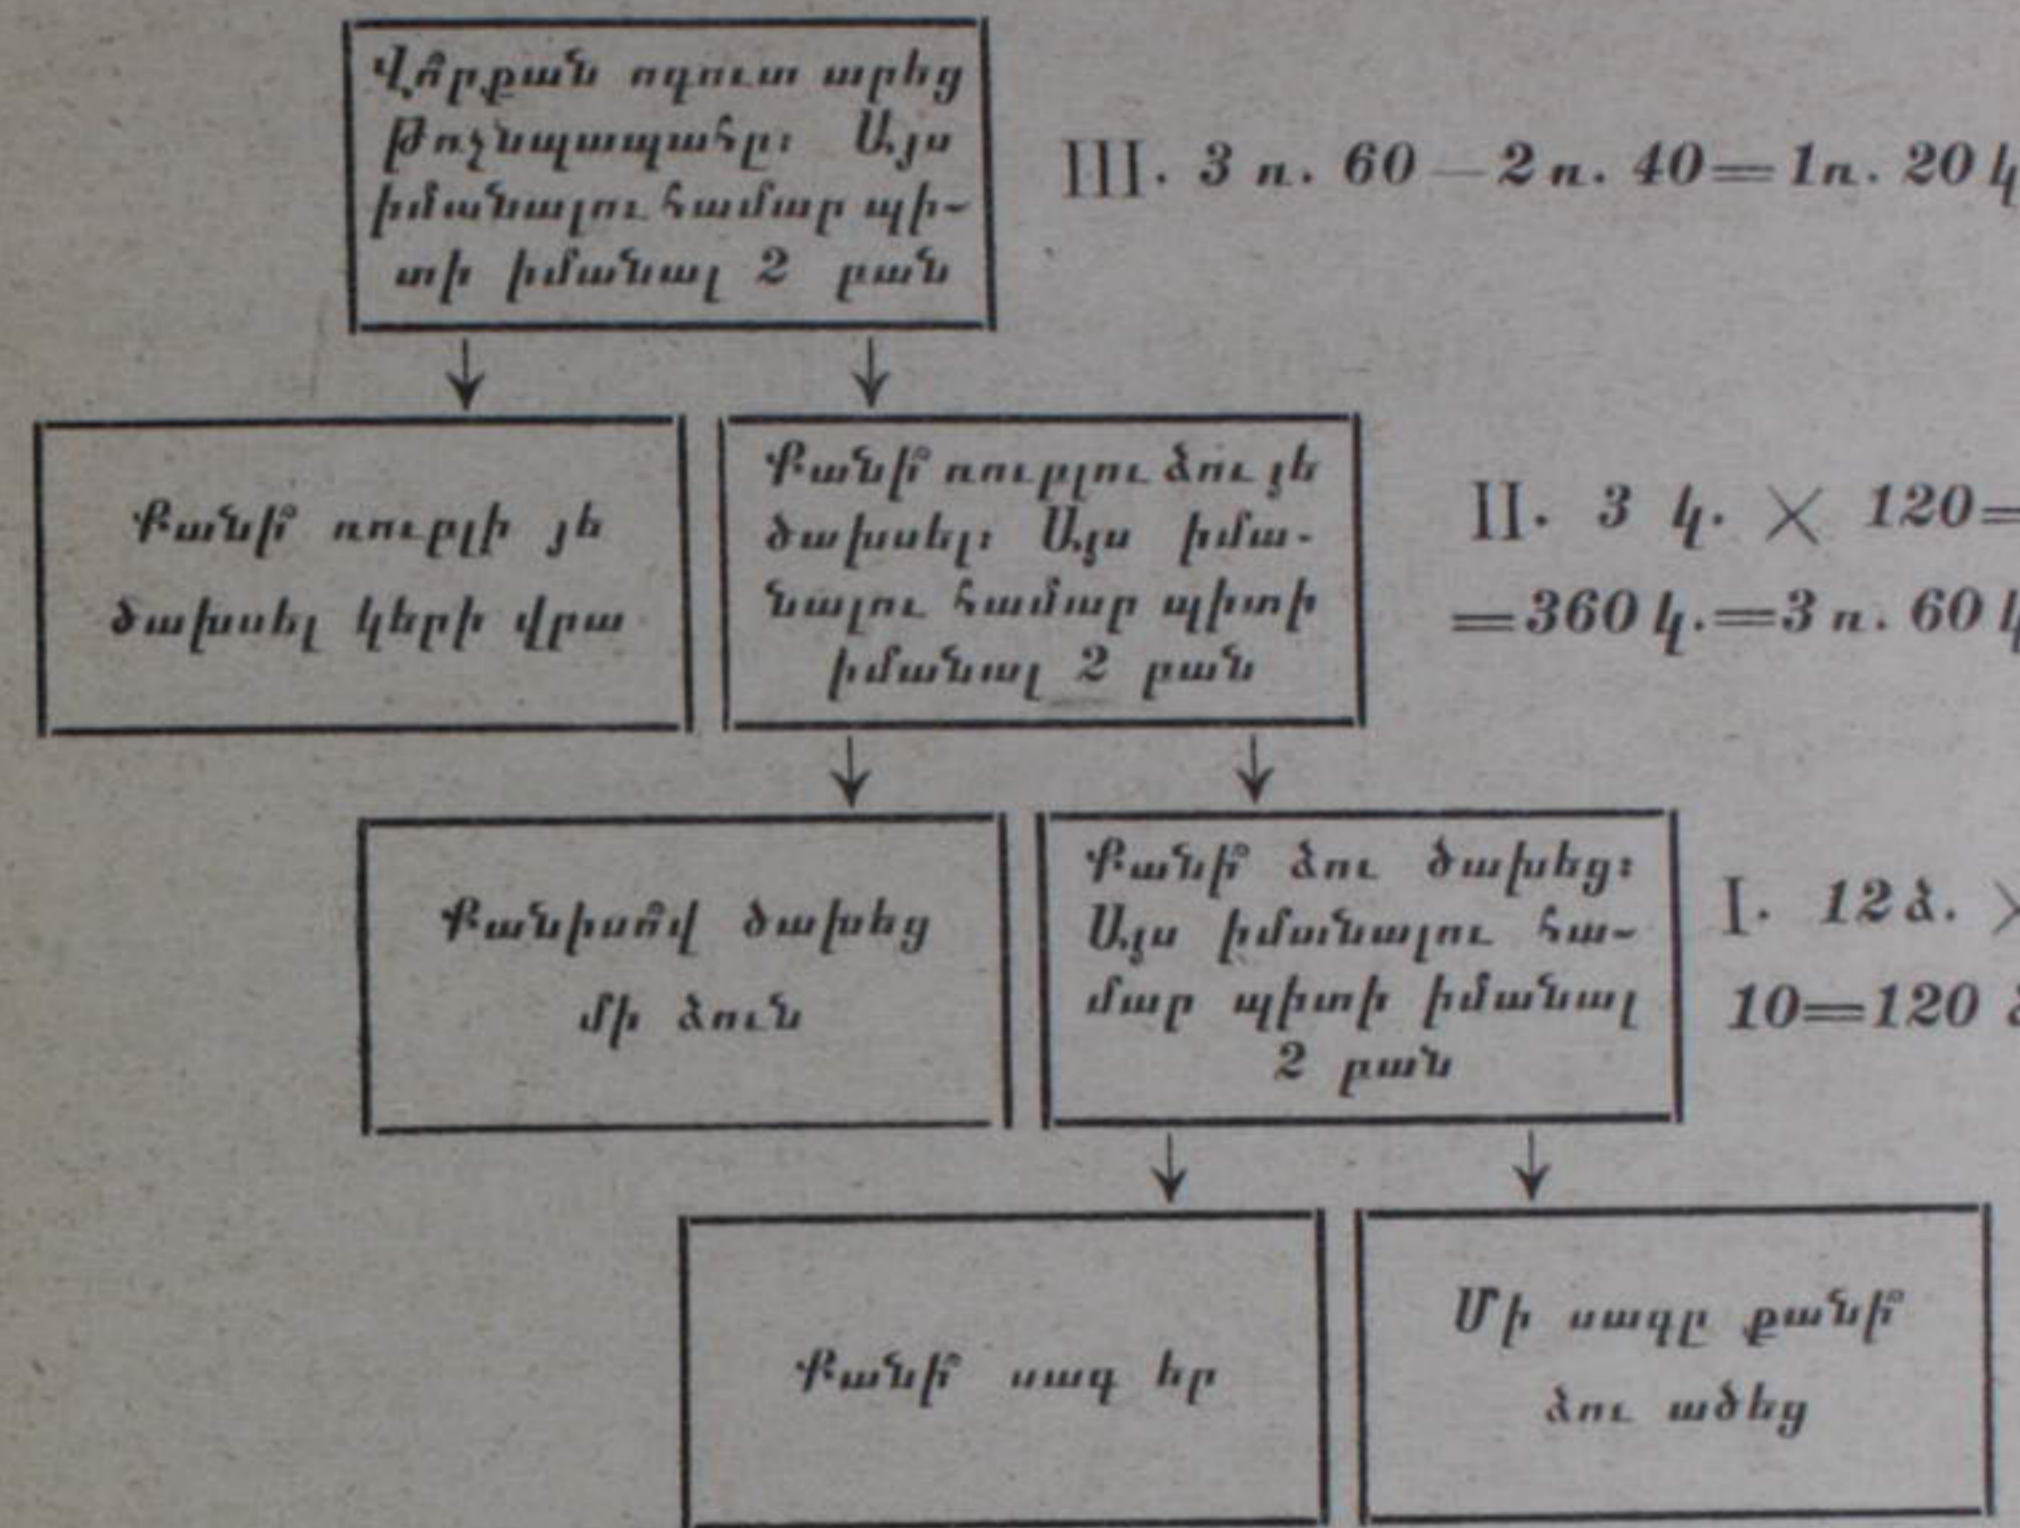 Վո՞րքան ոգուտ արեց
թռչնապահը։ Այս
իմանալու համար պի-
տի իմանալ 2 բան
III. 3 ռ. 60 — 2 ռ. 40 = 1 ռ. 20 կ
Քանի՞ ռուբլի յե
ծախսել կերի վրա
Քանի՞ ռուբլու ձու յե
ծախսել։ Այս իմա-
նալու համար պիտի
իմանալ 2 բան
II. 3 կ. × 120=
=360 կ.=3 ռ. 60 կ
Քանիսո՞վ ծախեց
մի ձուն
Քանի՞ ձու ծախեց։
Այս իմանալու հա-
մար պիտի իմանալ
2 բան
I. 12 ձ. ×
10=120 ձ
Քանի՞ սագ եր
Մի սագը քանի՞
ձու ածեց